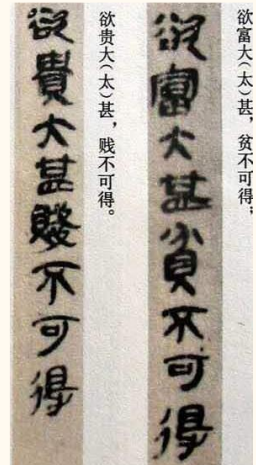 欲富大（太）甚，贫不可得；
欲富大甚貧不可得
欲贵大（太）甚，贱不可得。
欲貴大甚賤不可得